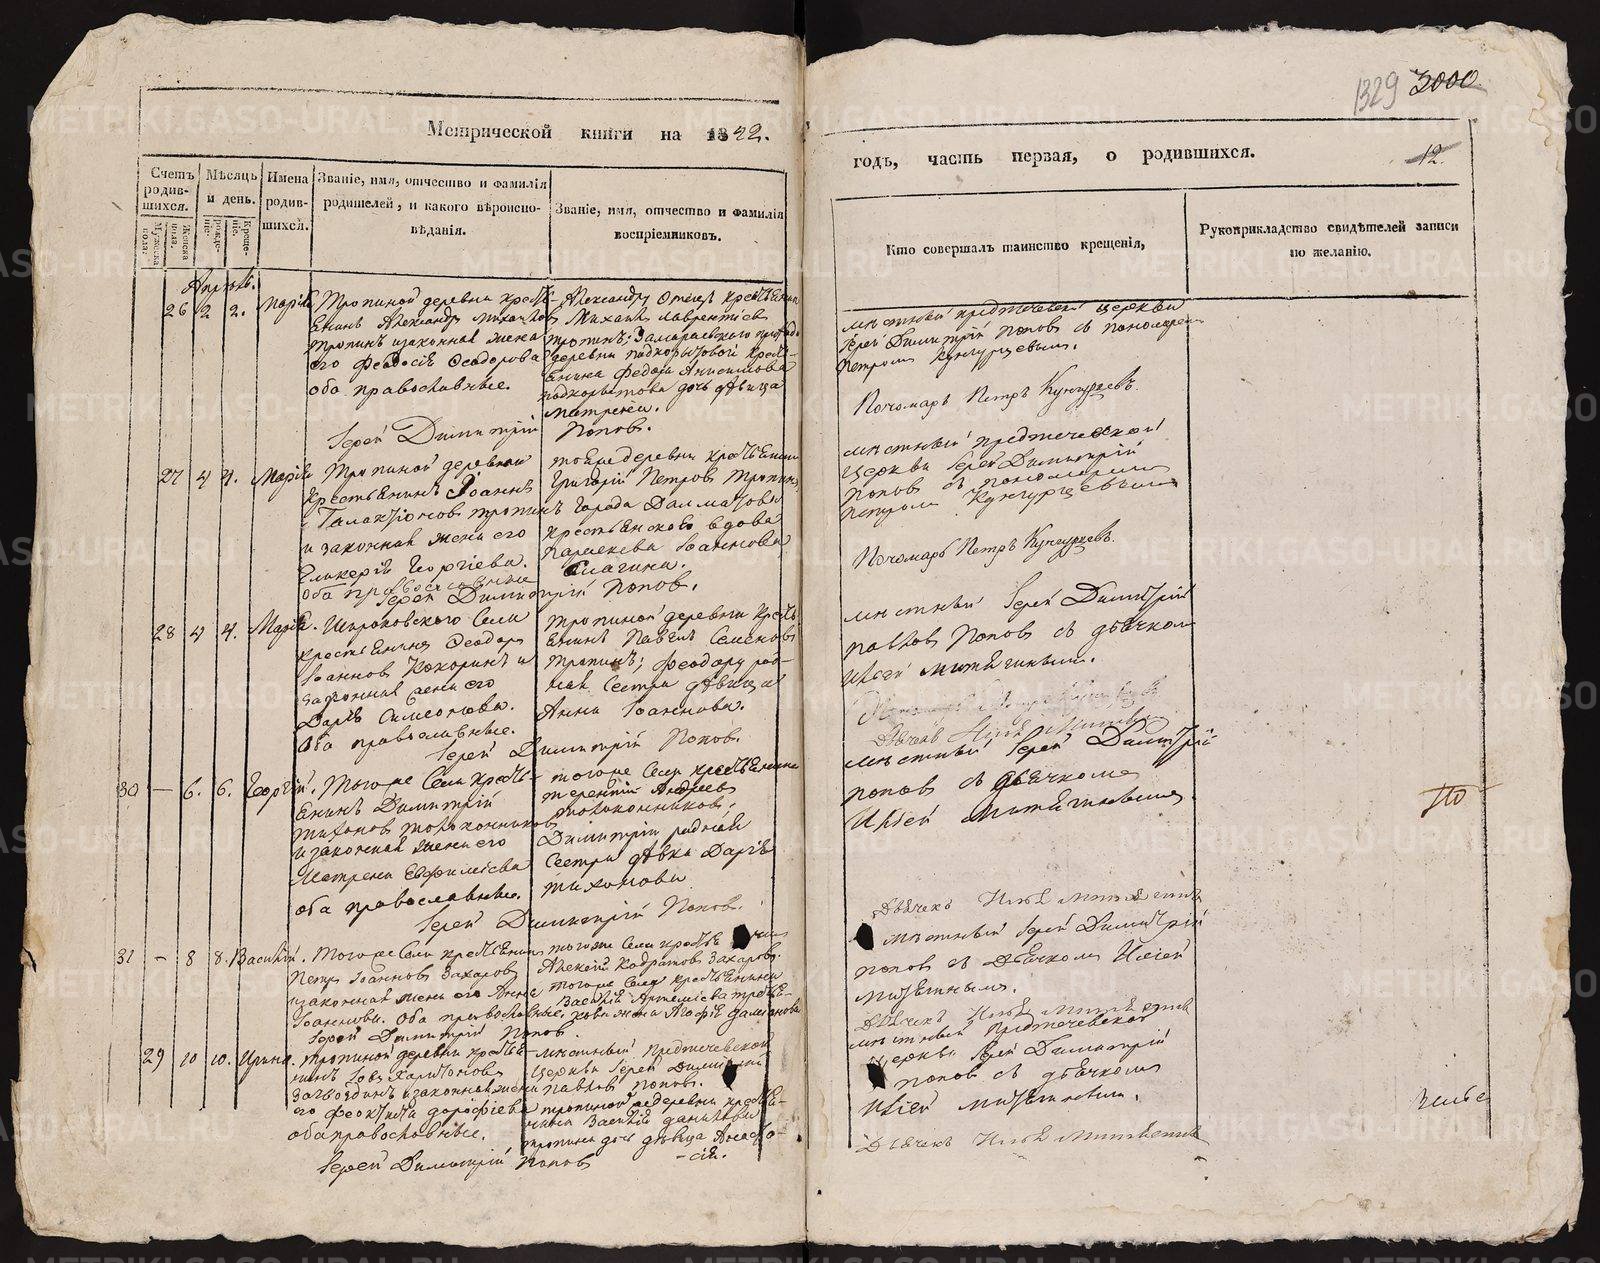 1329 3000
Метрической книги на 1842.
годъ, часть первая, о родившихся.
12.
Счетъ родив-шихся.
Мужеска пола.
Женска пола.
Мѣсяцъ и день.
Рожде-ніе.
Креще-ніе.
Имена родив-шихся.
Званіе, имя, отчество и фамилія
родишелей, и какого вѣроиспо-
вѣданія.
Званіе, имя, отчество и фамилія
воспріемниковъ.
Кто совершалъ таинство крещенія,
Рукоприкладство свидѣтелей записи
по желанію.
Апрель.
26 2 2. Марія
Тропиной деревни кресть-
янинъ Александръ Михайловъ
Тропинъ и законная жена
его Феодосія Феодорова
оба православные.
Александру Отецъ крестьянинъ
Михаилъ Лаврентіевъ
Тропинъ;
деревни Подкорытовой кресть-
янина Федора Анисимова
Подкорытова дочь дѣвица
Матрена.
Іерей Димитрій Попов.
мѣстный Предтечевской церкви
Іерей Димитрій Попов съ пономарем
Петром Кунгурцевым.
Пономарь Петръ Кунгурцевъ.
27 4 4. Марія
Тропиной деревни
крестьянинъ Іоаннъ
Галактіонов Тропинъ
и законная жена его
Гликерія Георгіева.
оба православные
тоя же деревни крестьянин
Григорій Петров Тропинъ,
Города Далматова
крестьянская вдова
Параскева Іоаннова
Іерей Димитрій Попов.
мѣстный Предтеческой
церкви Іерей Димитрій
Попов съ пономарем
Петром Кунгурцевым
Пономарь Петръ Кунгурцевъ.
28 4 4. Марія.
Широковского Села
крестьянинъ Феодоръ
Іоаннов Кокоринъ и
законная жена его
Дарія Симеонова.
Оба православные.
Тропиной деревни кресть-
янинъ Павелъ Семенов
Тропинъ; Феодору род-
ная Сестра дѣвица
Анна Іоаннова.
Іерей Димитрій Попов.
мѣстный Іерей Димитрій
Павлов Попов съ дьячком
Иліей Митягиным.
30 — 6. 6. Георгій.
Того же Села кресть-
янинъ Димитрій
Тихонов Толоконников
и законная жена его
Матрена Евфиміева
оба православные.
того же Села крестьянин
Терентій Андреев
Толоконников,
Димитрію родная
Сестра дѣвка Дарія
Тихонова
Іерей Димитрій Попов.
мѣстный Іерей Димитрій
Попов съ дьячком
Иліей Митягиным.
Дьячекъ Илья Митягинъ
31 — 8 8. Василій.
Того же Села крестьянин
Петръ Іоаннов Захаров
и законная жена его Анна
Іоаннова. Оба православные.
того же Села кресть
Алексій Кодратов Захаров.
того же Села крестьянина
Василія Артеміева
жена Агафія Даміанова
Іерей Димитрій Попов.
мѣстный Іерей Димитрій
Попов съ Дьячком Иліей
Митягиным.
Дьячекъ Илья Митягинъ
29 10 10. Ирина.
Тропиной деревни крестья-
нинъ Іовъ Харитонов
и законная жена
его Феоктиста Дорофіева
оба православные.
мѣстный Предтечевской
церкви Іерей Димитрій
Павлов Попов.
Тропиной же деревни крестья-
нина Василія Данилова
Тропина дочь дѣвица Анаста-
сія.
Іерей Димитрій Попов
мѣстный Предтечевской
церкви Іерей Димитрій
Попов съ дьячком
Иліей Митягиным.
Дьячекъ Илья Митягинъ
METRIKI.GASO-URAL.RU